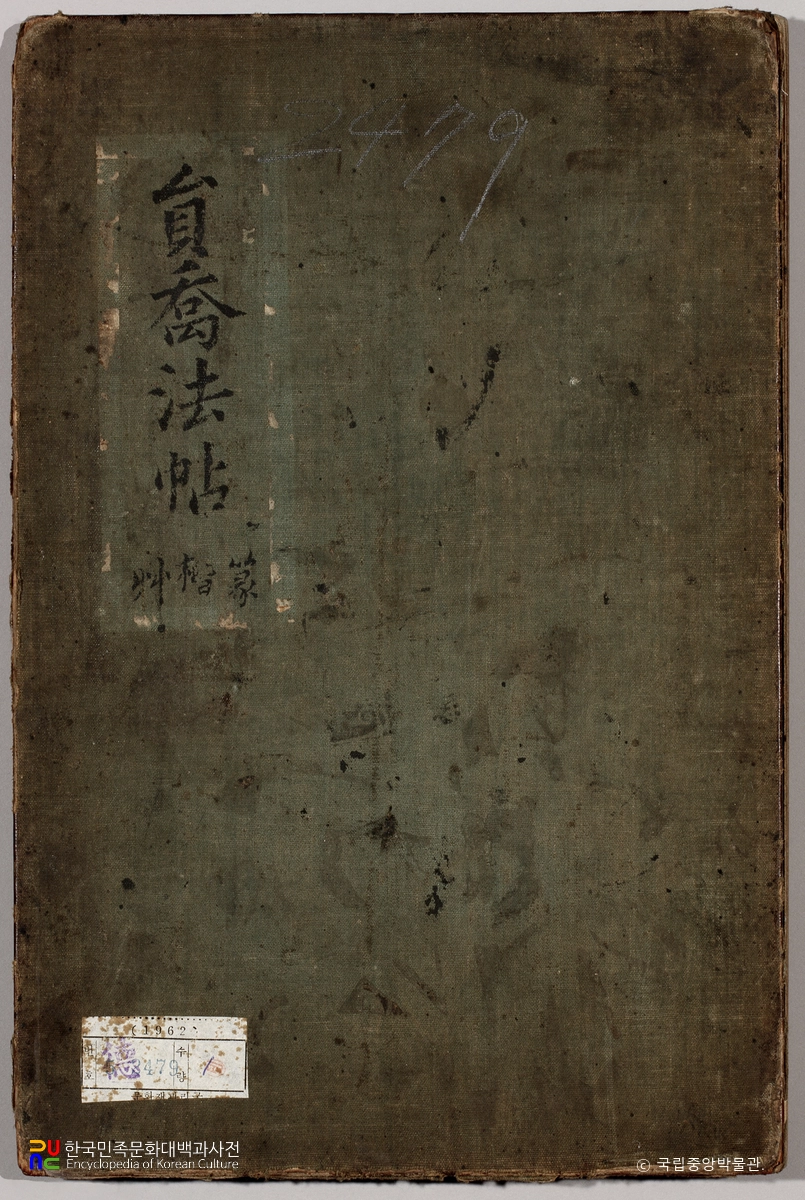 2479
貟喬法帖
篆楷艸
(1962)
德 2479 수량 1
한국민족문화대백과사전
Encyclopedia of Korean Culture
© 국립중앙박물관.